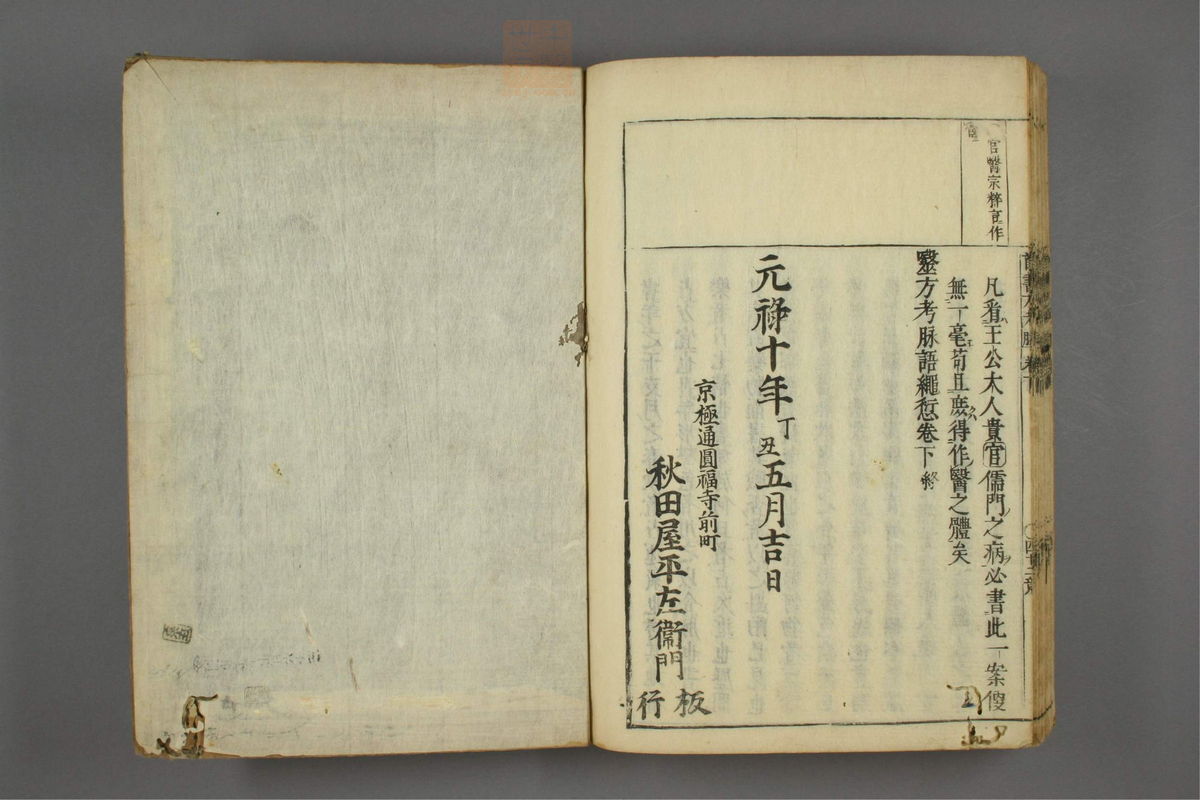 官醫宗粹言作
凡看王公大人貴官儒門之病必書此一案傻
無一毫苟且庶得作醫之體矣
醫方考脉語繩愆卷下終
元禄十年丁丑五月吉日
京極通圓福寺前町
秋田屋平左衞門
板行